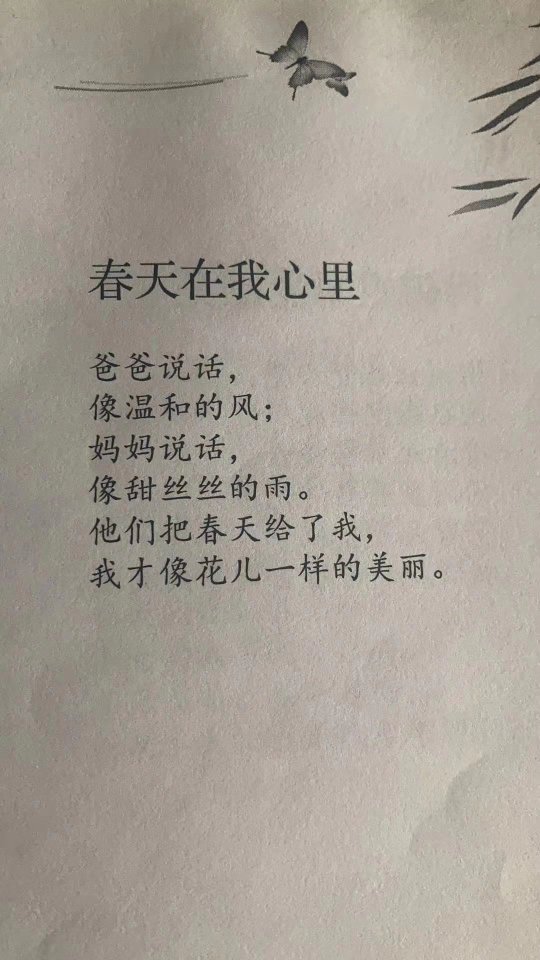 春天在我心里
爸爸说话，
像温和的风；
妈妈说话，
像甜丝丝的雨。
他们把春天给了我，
我才像花儿一样的美丽。